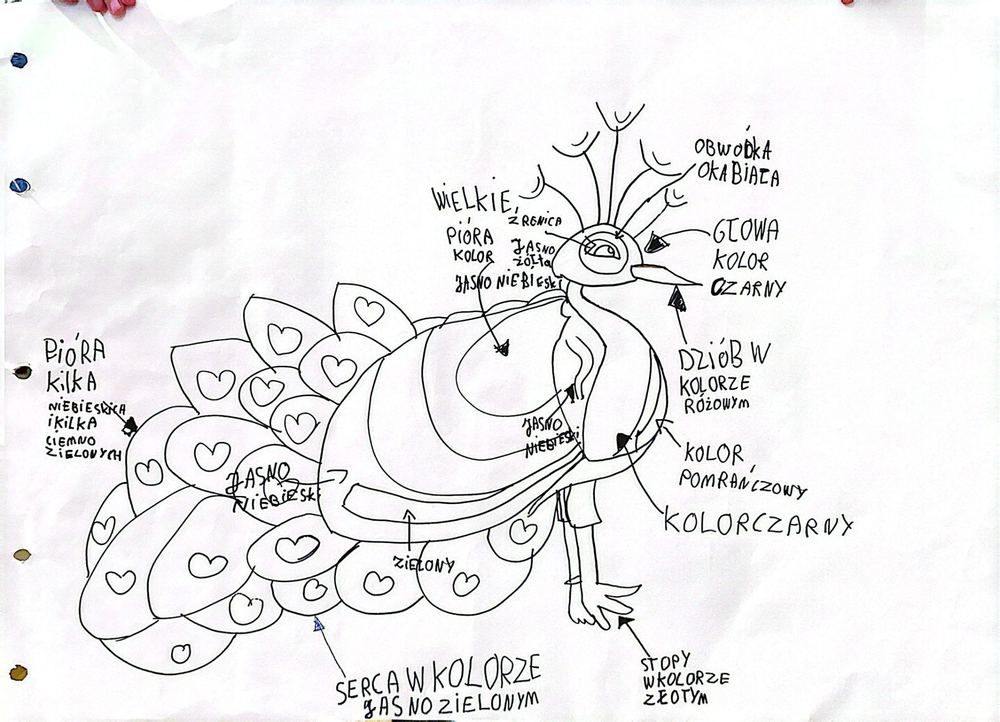 OBWÓDKA
OKA BIAŁA
WIELKIE,
PIÓRA
KOLOR
JASNO NIEBIESKI
ŹRENICA
JASNO
ŻÓŁTA
GŁOWA
KOLOR
CZARNY
DZIÓB W
KOLORZE
RÓŻOWYM
PIÓRA
KILKA
NIEBIESKICH
I KILKA
CIEMNO
ZIELONYCH
JASNO
NIEBIESKI
KOLOR
POMRAŃCZOWY
KOLOR CZARNY
JASNO
NIEBIESKI
ZIELONY
SERCA W KOLORZE
JASNO ZIELONYM
STOPY
W KOLORZE
ZŁOTYM